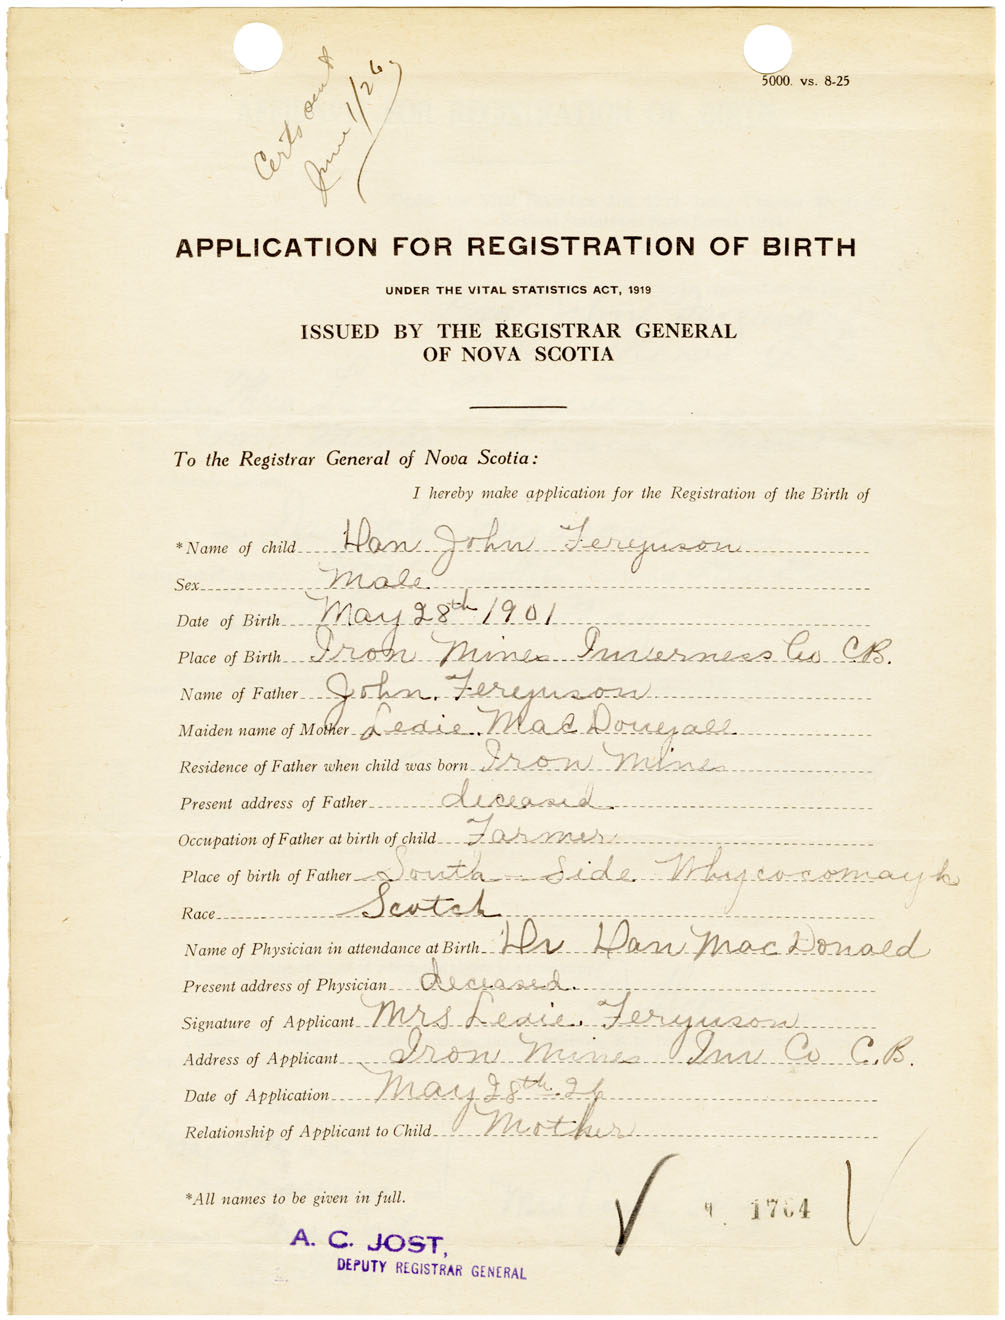 Certs sent
June 1/26
5000. vs. 8-25
APPLICATION FOR REGISTRATION OF BIRTH
UNDER THE VITAL STATISTICS ACT, 1919
ISSUED BY THE REGISTRAR GENERAL
OF NOVA SCOTIA
To the Registrar General of Nova Scotia:
I hereby make application for the Registration of the Birth of
*Name of child Dan John Ferguson
Sex Male
Date of Birth May 28th 1901
Place of Birth Iron Mines Inverness Co C.B.
Name of Father John. Ferguson
Maiden name of Mother Lexie. MacDougall
Residence of Father when child was born Iron Mines
Present address of Father deceased.
Occupation of Father at birth of child Farmer
Place of birth of Father South Side Whycocomagh
Race Scotch
Name of Physician in attendance at Birth Dr Dan MacDonald
Present address of Physician deceased.
Signature of Applicant Mrs Lexie. Ferguson
Address of Applicant Iron Mines Inv Co C.B.
Date of Application May 28th. 26
Relationship of Applicant to Child Mother
*All names to be given in full.
1764
A. C. JOST,
DEPUTY REGISTRAR GENERAL